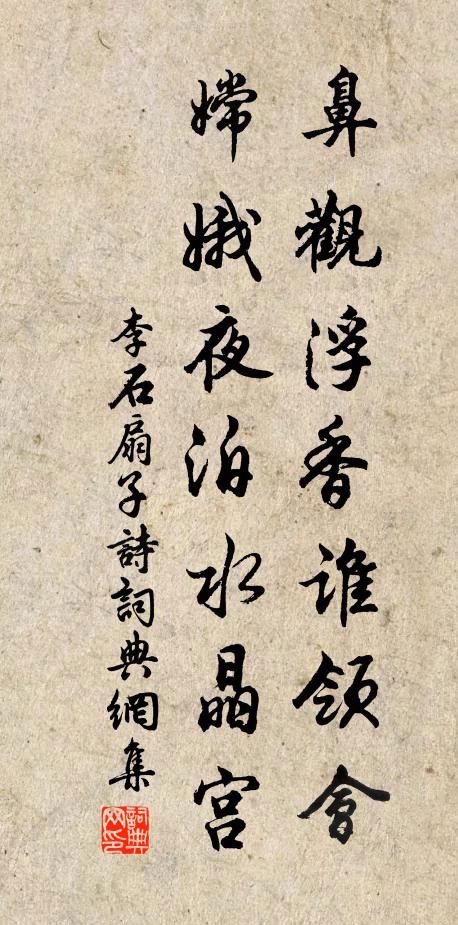 鼻觀浮香誰領會
嫦娥夜泊水晶宮
李石扇子詩詞典網集
詞典網印